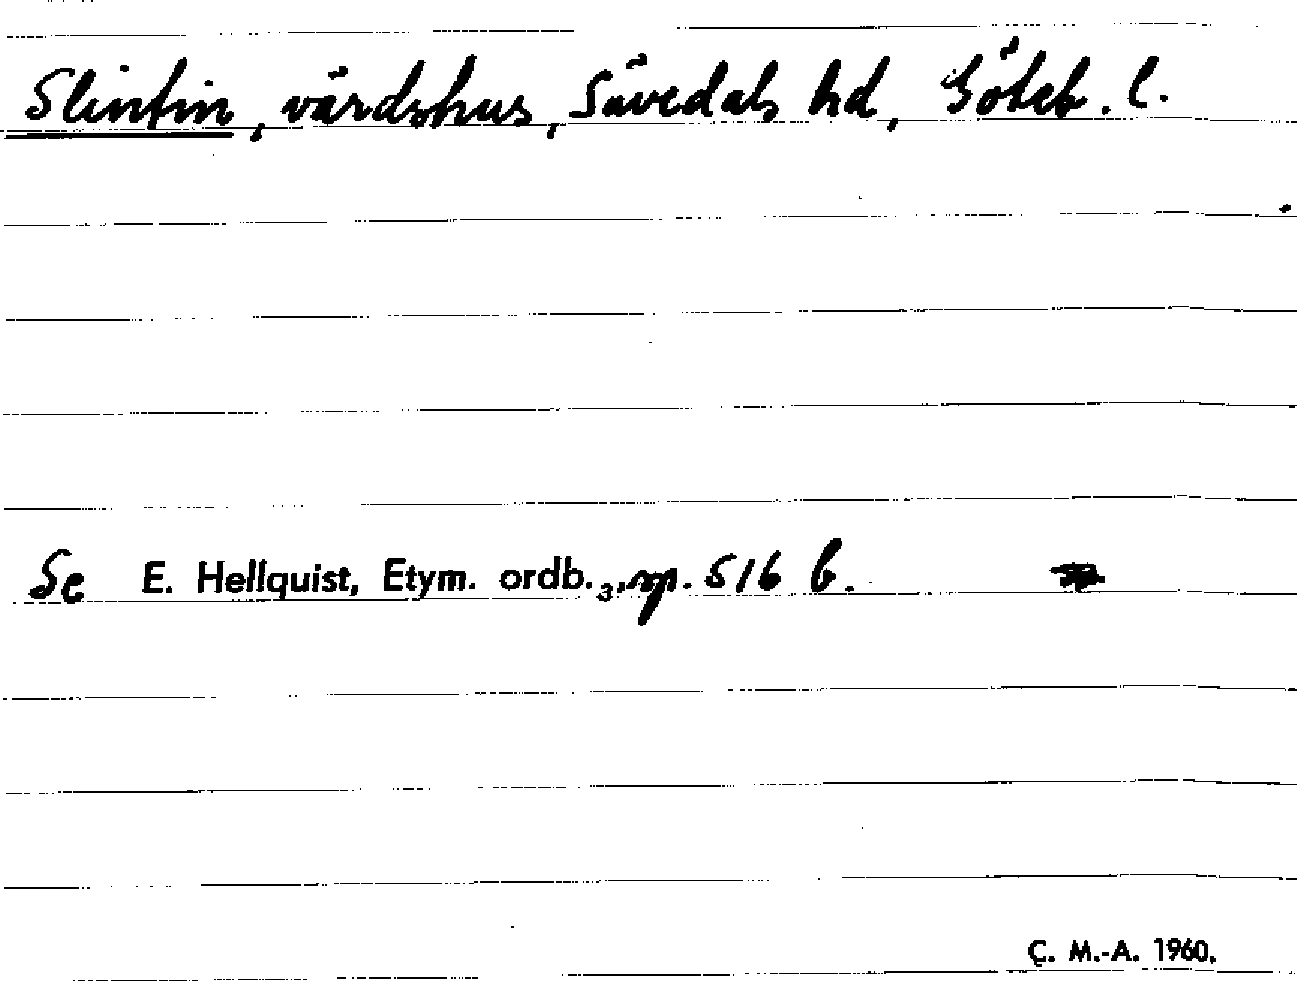 Slintin, värdshus, Sävedals hd, Göteb. l.
Se E. Hellquist, Etym. ordb.₃, sp. 516 b.
C. M.-A. 1960.